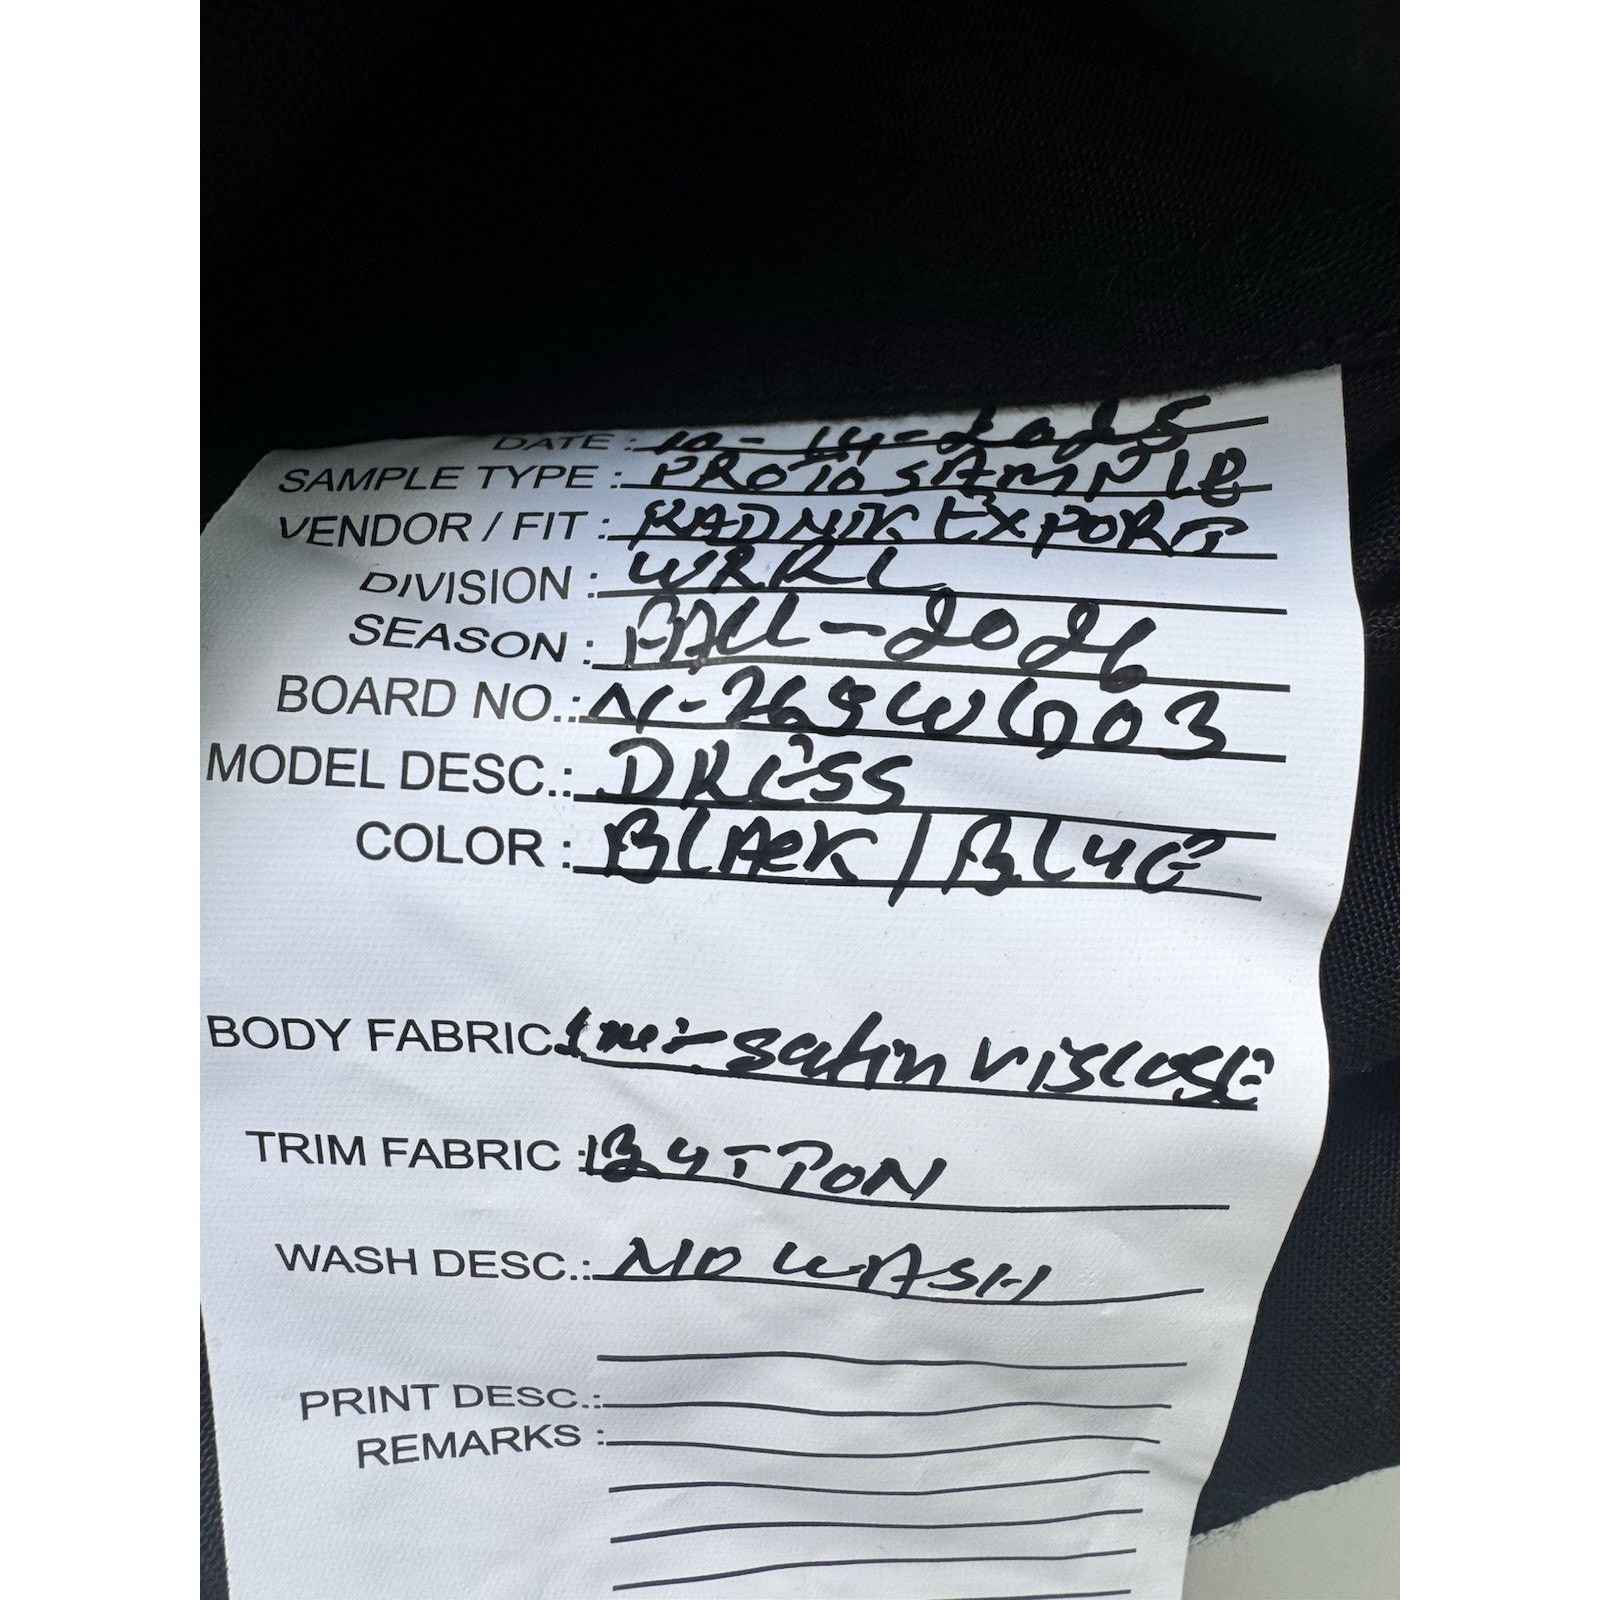 DATE : 10-14-2025
SAMPLE TYPE : PROTO SAMPLE
VENDOR / FIT : RADNIK EXPORT
DIVISION : WRRL
SEASON : FALL-2026
BOARD NO.:
MODEL DESC.: DRESS
COLOR : BLACK / BLUE
BODY FABRIC satin viscose
TRIM FABRIC : BUTTON
WASH DESC.: NO WASH
PRINT DESC.:
REMARKS :